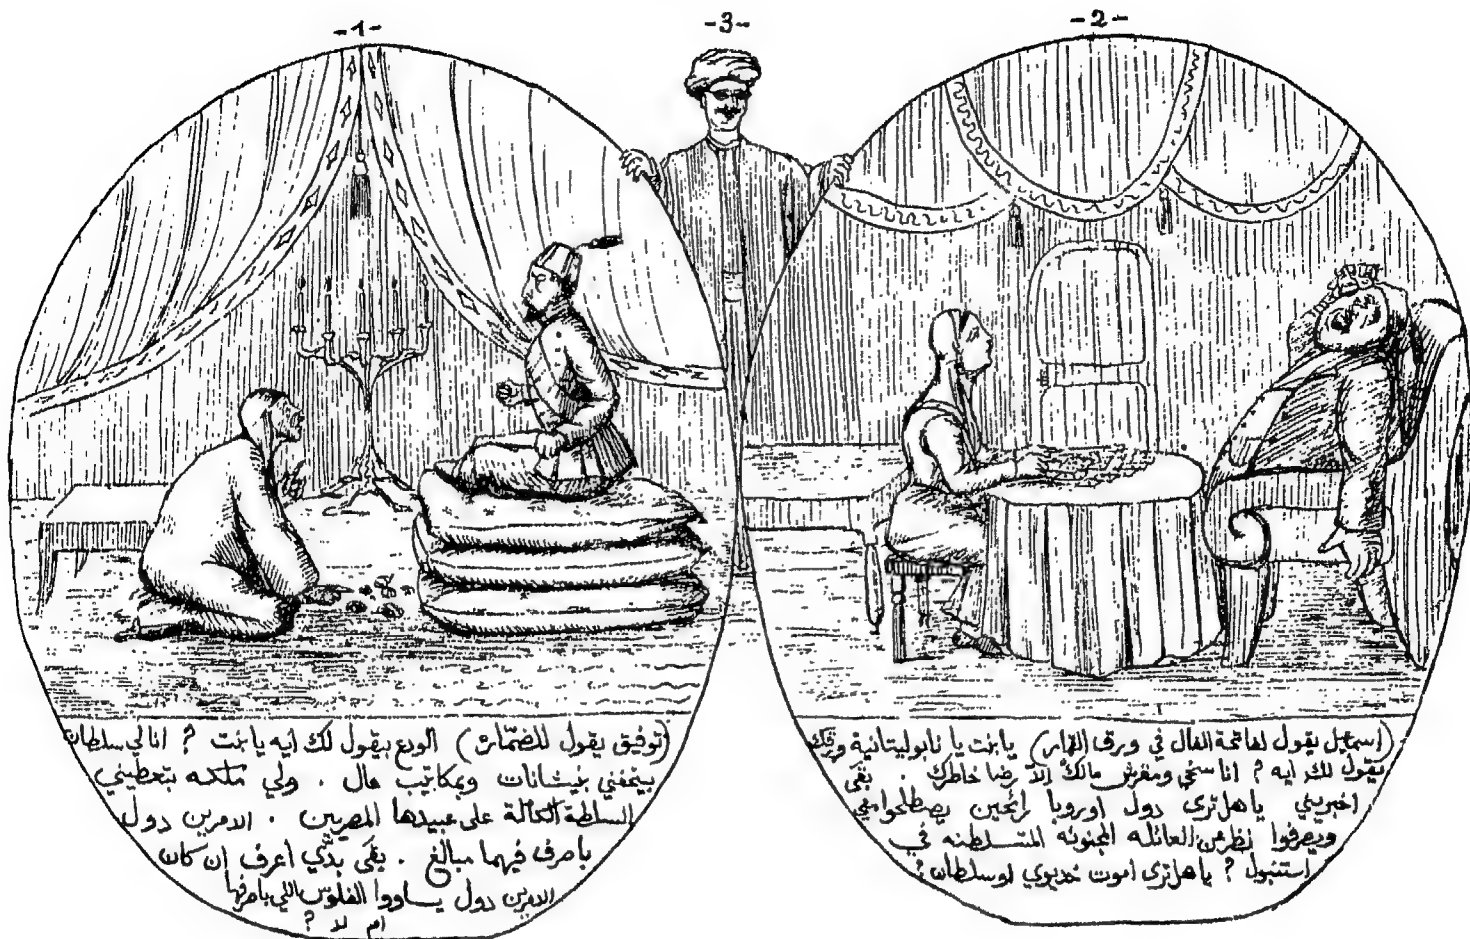 -1-
-3-
-2-
(توفيق يقول للضمّاره) الودع بيقول لك ايه يا بنت ? انا لي سلطان
بيتحفني بنيشانات وبمكاتيب مال . ولي ملكه بتعطيني
السلطة الكاملة على عبيدها المصريين . الامرين دول
باصرف فيهما مبالغ . بقى بدّي اعرف ان كان
الامرين دول يساووا الفلوس اللي باصرفها
ام لا ?
(اسماعيل يقول لفاتحة الفال في ورق القمار) يا بنت يا نابوليتانية ورقك
يقول لك ايه ? انا سخي ومفرش مالك الا رضا خاطرك . بقى
اخبريني يا هل ترى دول اوروبا رايحين يصطلحوا معي
ويصرفوا نظر عن العائله المجنونه المتسلطنه في
استنبول ? يا هل ترى اموت خديوي او سلطان ?